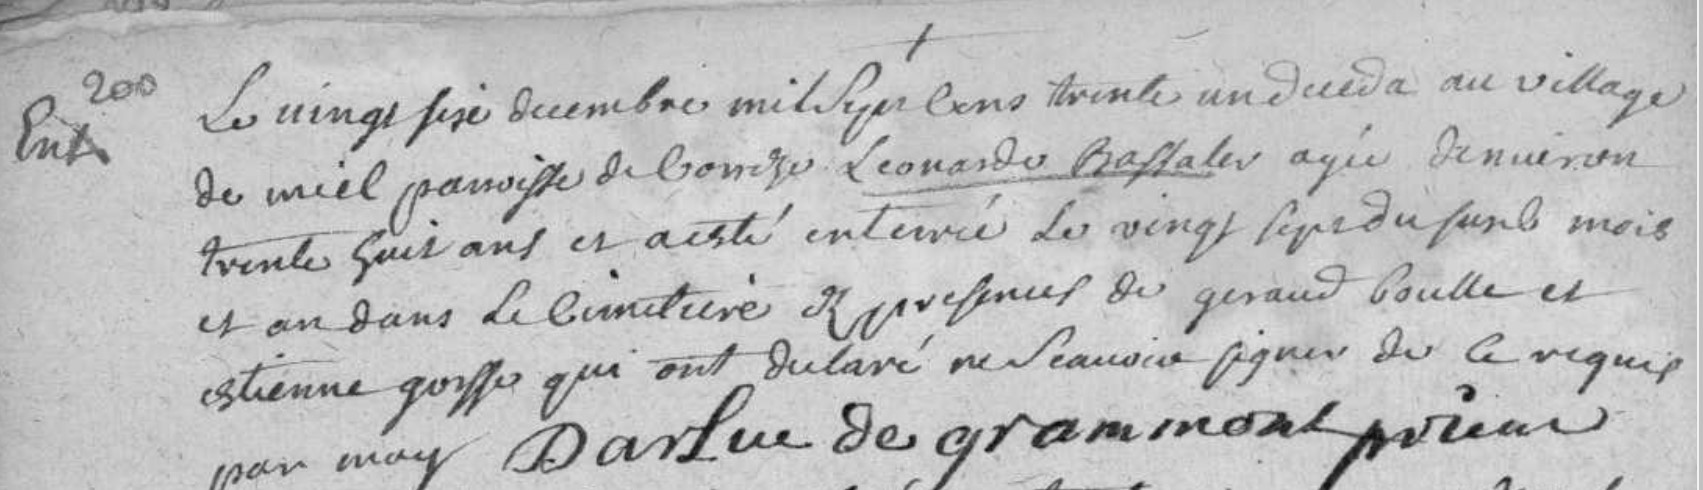 200
Ent
Le vingt sixe decembre mil sept cens trente un deceda au village
de miel parroisse de Correze Leonarde Bassaler agée denuiron
trente huit ans et a esté enterrée le vingt sept du susd mois
et an dans le Cimetiere Ez presences de geraud boulle et
estienne gorsse qui ont declaré ne scauoir signer de ce requis
par moy Darluc de grammont prieur